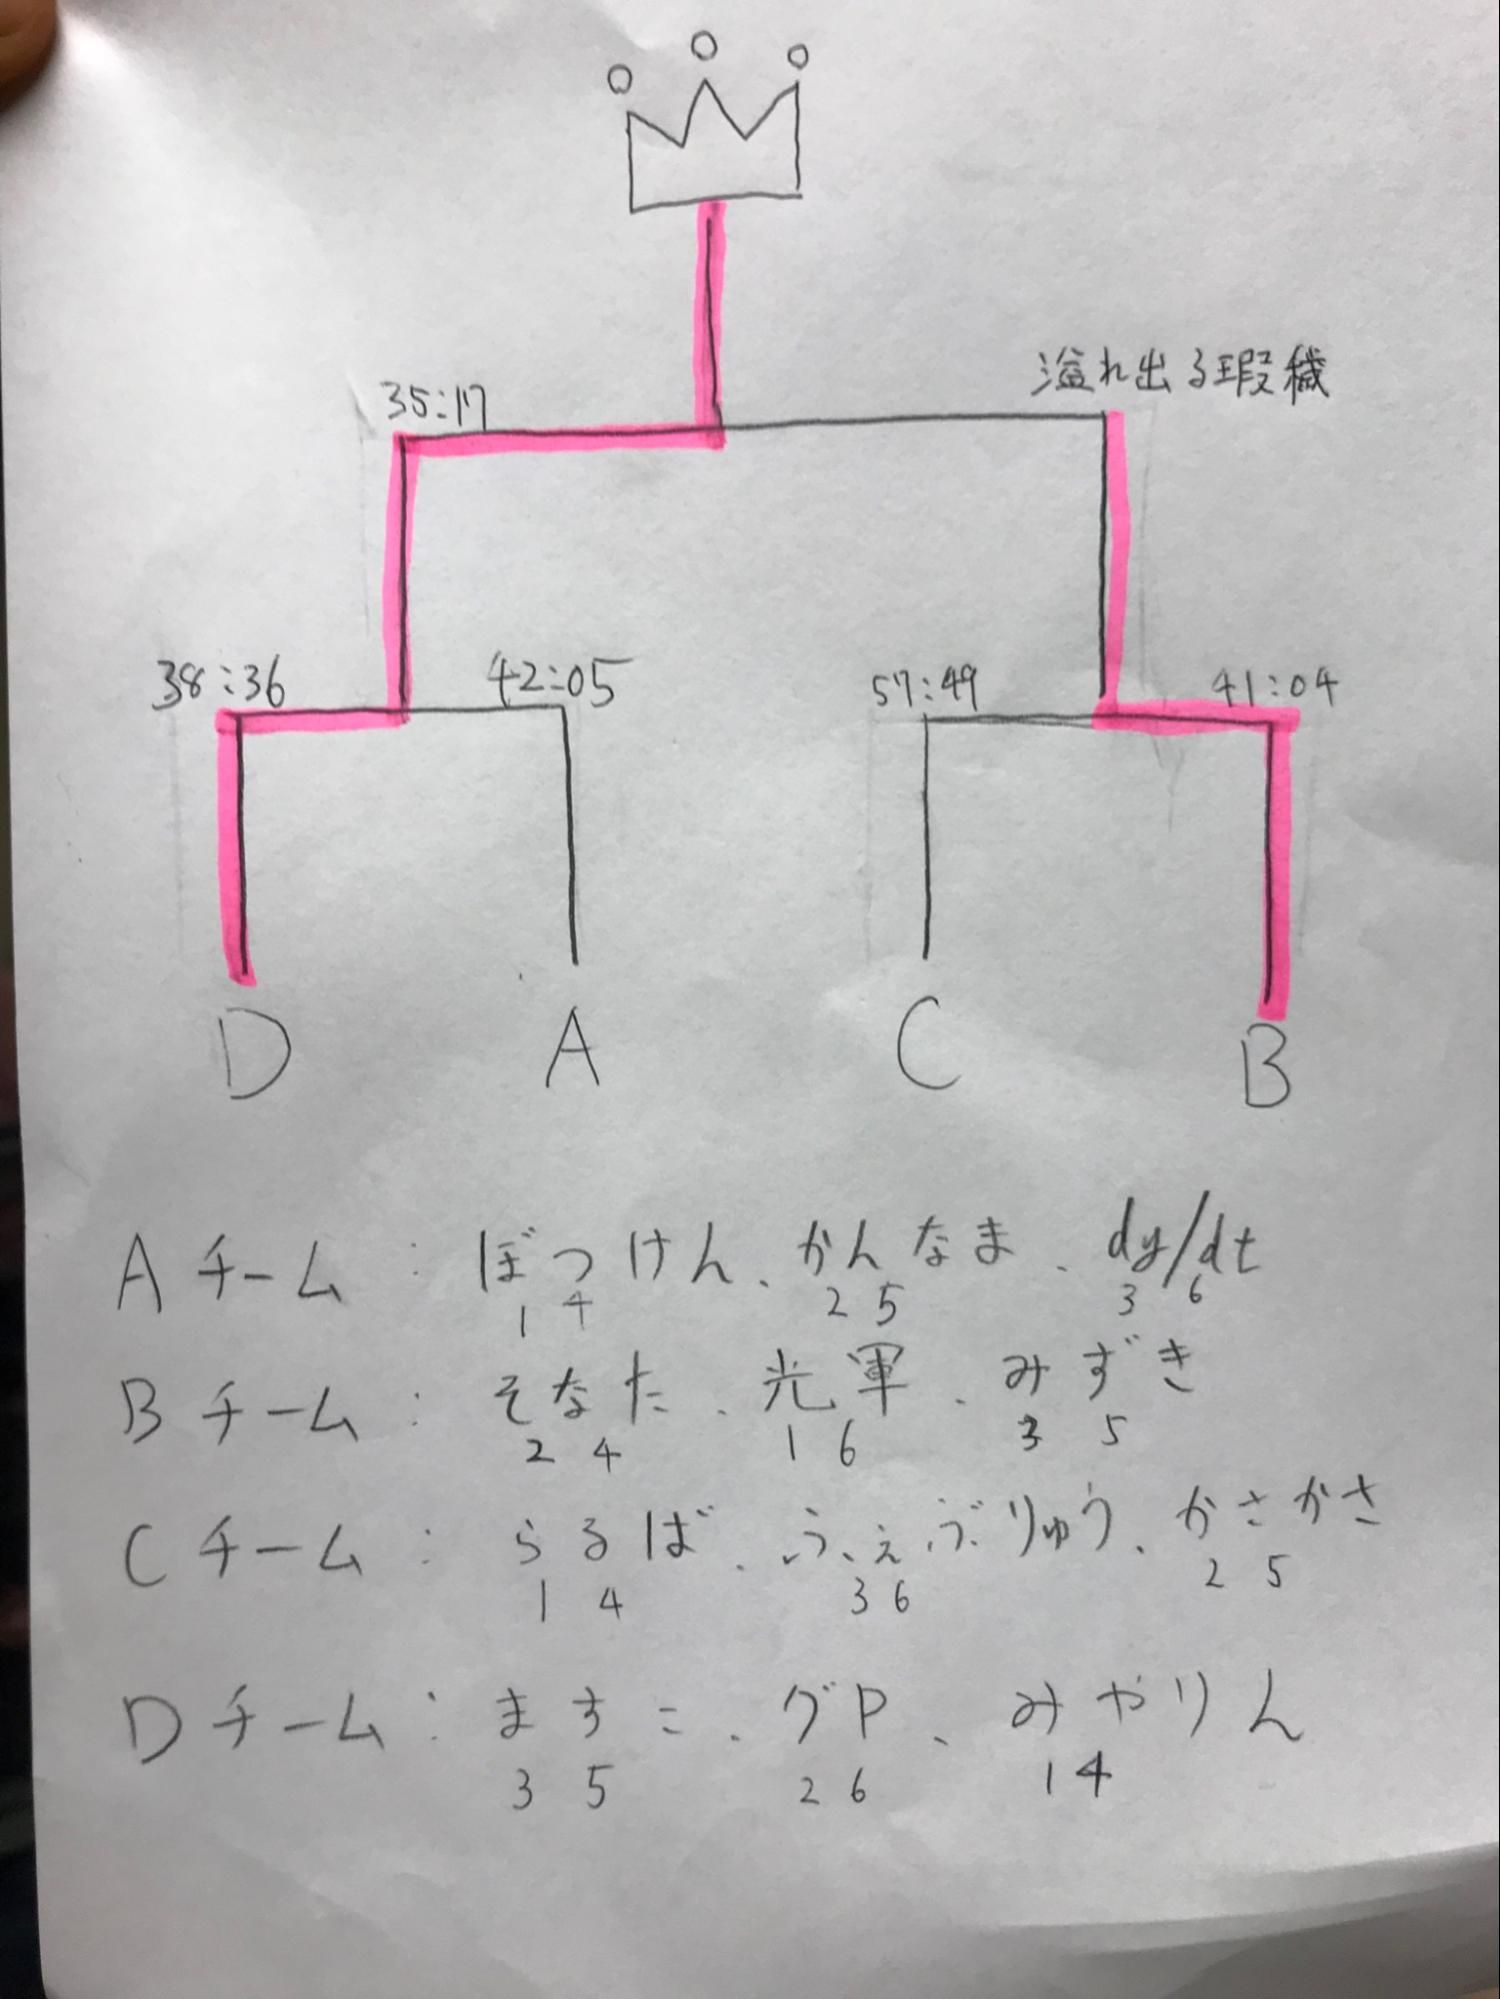 溢れ出る瑕穢
35:17
38:36 42:05 57:49 41:04
D A C B
Aチーム：ぼっけん、かんなま、dy/dt
1 4 2 5 3 6
Bチーム：そなた、光軍、みずき
2 4 1 6 3 5
Cチーム：らるば、ふぇぶりゅう、かさかさ
1 4 3 6 2 5
Dチーム：ますこ、グP、みやりん
3 5 2 6 1 4